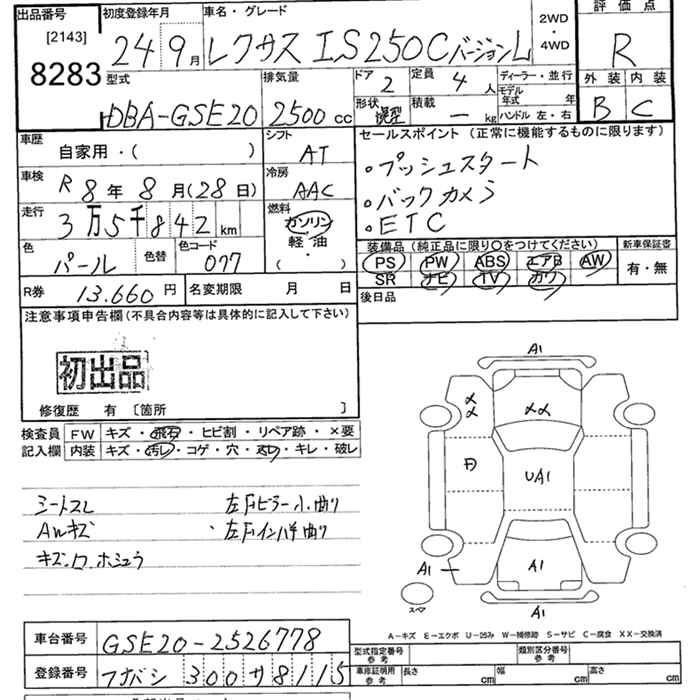 出品番号
[2143]
8283
初度登録年月
24 9月
車名・グレード
レクサス IS250C バージョンL
2WD
・
4WD
評価点
R
外装 内装
B C
型式
DBA-GSE20
排気量
2500 cc
ドア
2
定員
4人
形状
積載
― kg
ディーラー・並行
モデル年式 年
ハンドル 左・右
車歴
自家用・( )
シフト
AT
車検
R 8年 8月(28日)
冷房
AAC
走行
3万5千842 km
燃料
ガソリン
軽・油
( ・ )
色
パール
色替
色コード
077
R券
13.660円
名変期限 月 日
セールスポイント (正常に機能するものに限ります)
・プッシュスタート
・バックカメラ
・ETC
装備品(純正品に限り○をつけてください)
PS PW ABS エアB AW
SR ナビ TV カワ
新車保証書
有・無
後日品
注意事項申告欄(不具合内容等は具体的に記入して下さい)
初出品
修復歴 有 〔箇所 〕
検査員
記入欄
FW キズ・飛石・ヒビ割・リペア跡・×要
内装 キズ・汚レ・コゲ・穴・・キレ・破レ
シートスレ
AWキズ
キズ、ワ ホシュウ
左Fピラー小曲り
左Fインパネ曲り
A1
XX
XX
UA1
A1
A1
A1
スペア
A−キズ E−エクボ U−凹み W−補修跡 S−サビ C−腐食 XX−交換済
車台番号
GSE20-2526778
登録番号
ツナバシ 300 サ 8115
型式指定番号
参考
類別区分番号
参考
車庫証明用
参考
長さ cm
幅 cm
高さ cm